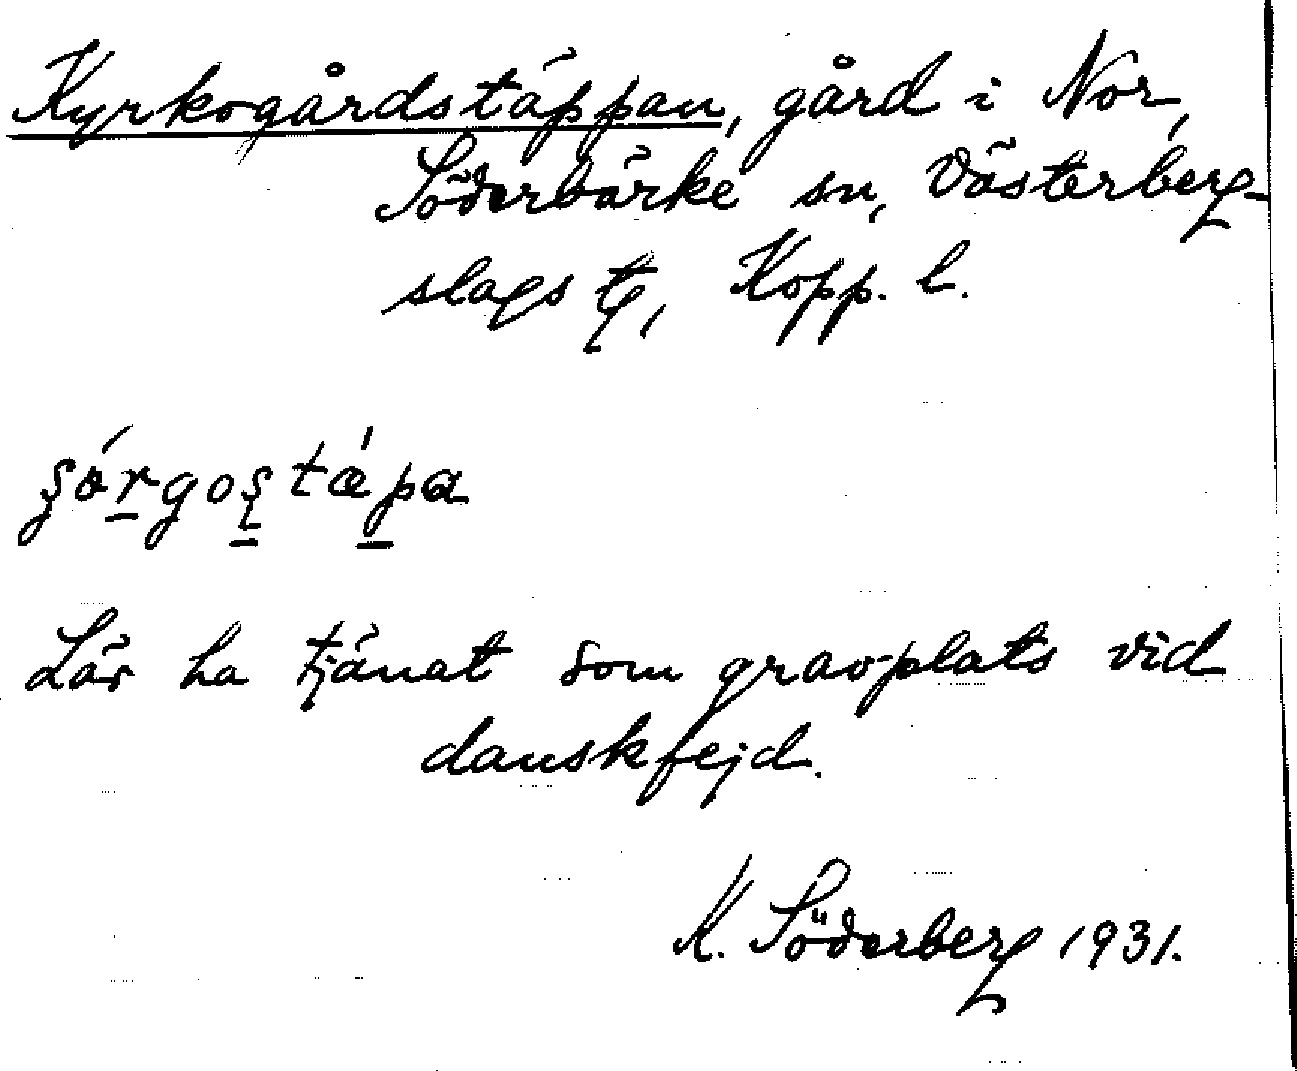 Kyrkogårdstäppan, gård i Nor,
Söderbärke sn, Västerberg-
slags tg, Kopp. l.
Lär ha tjänat som gravplats vid
danskfejd.
K. Söderberg 1931.